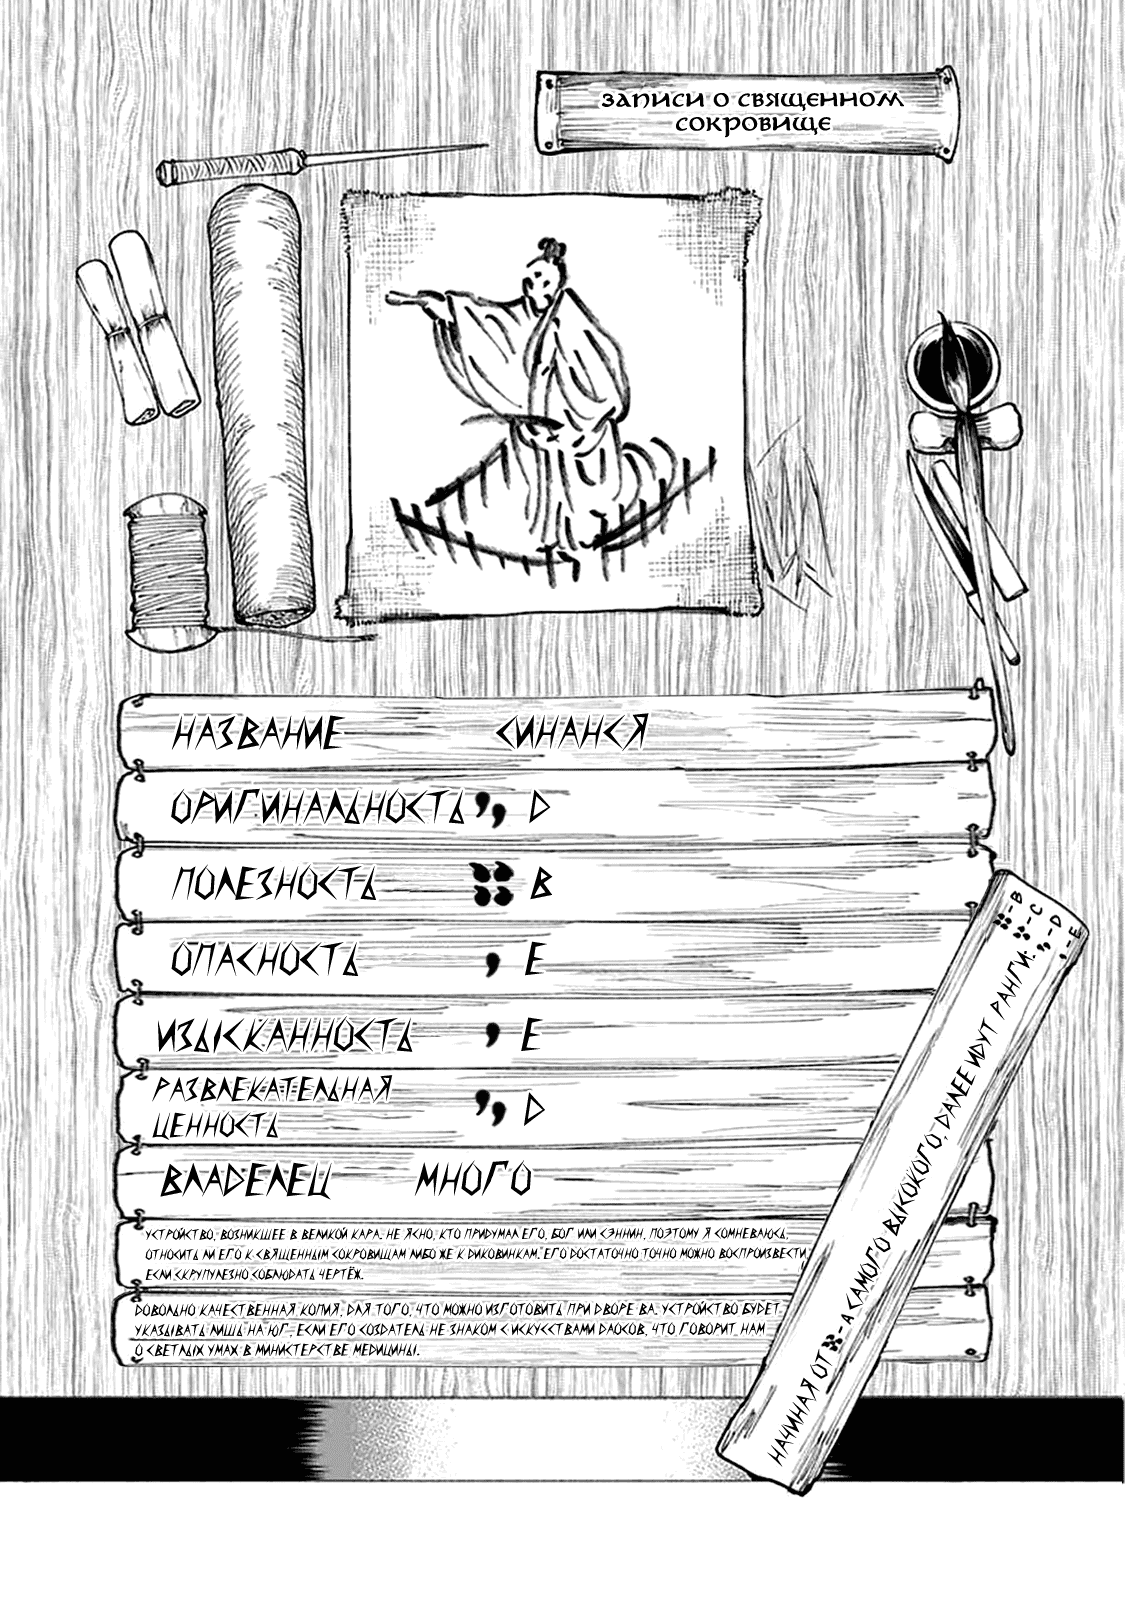 ЗАПИСИ О СВЯЩЕННОМ
СОКРОВИЩЕ
НАЗВАНИЕ СИНАНСЯ
ОРИГИНАЛЬНОСТЬ D
ПОЛЕЗНОСТЬ B
ОПАСНОСТЬ E
ИЗЫСКАННОСТЬ E
РАЗВЛЕКАТЕЛЬНАЯ
ЦЕННОСТЬ D
ВЛАДЕЛЕЦ МНОГО
УСТРОЙСТВО, ВОЗНИКШЕЕ В ВЕЛИКОЙ КАРА. НЕ ЯСНО, КТО ПРИДУМАЛ ЕГО, БОГ ИЛИ СЭННИН, ПОЭТОМУ Я СОМНЕВАЮСЬ,
ОТНОСИТЬ ЛИ ЕГО К СВЯЩЕННЫМ СОКРОВИЩАМ ЛИБО ЖЕ К ДИКОВИНКАМ. ЕГО ДОСТАТОЧНО ТОЧНО МОЖНО ВОСПРОИЗВЕСТИ,
ЕСЛИ СКРУПУЛЕЗНО СОБЛЮДАТЬ ЧЕРТЁЖ.
ДОВОЛЬНО КАЧЕСТВЕННАЯ КОПИЯ, ДЛЯ ТОГО, ЧТО МОЖНО ИЗГОТОВИТЬ ПРИ ДВОРЕ ВА. УСТРОЙСТВО БУДЕТ
УКАЗЫВАТЬ ЛИШЬ НА ЮГ, ЕСЛИ ЕГО СОЗДАТЕЛЬ НЕ ЗНАКОМ С ИСКУССТВАМИ ДАОСОВ, ЧТО ГОВОРИТ НАМ
О СВЕТЛЫХ УМАХ В МИНИСТЕРСТВЕ МЕДИЦИНЫ.
НАЧИНАЯ ОТ - А САМОГО ВЫСОКОГО, ДАЛЕЕ ИДУТ РАНГИ:
- B
- C
- D
- E